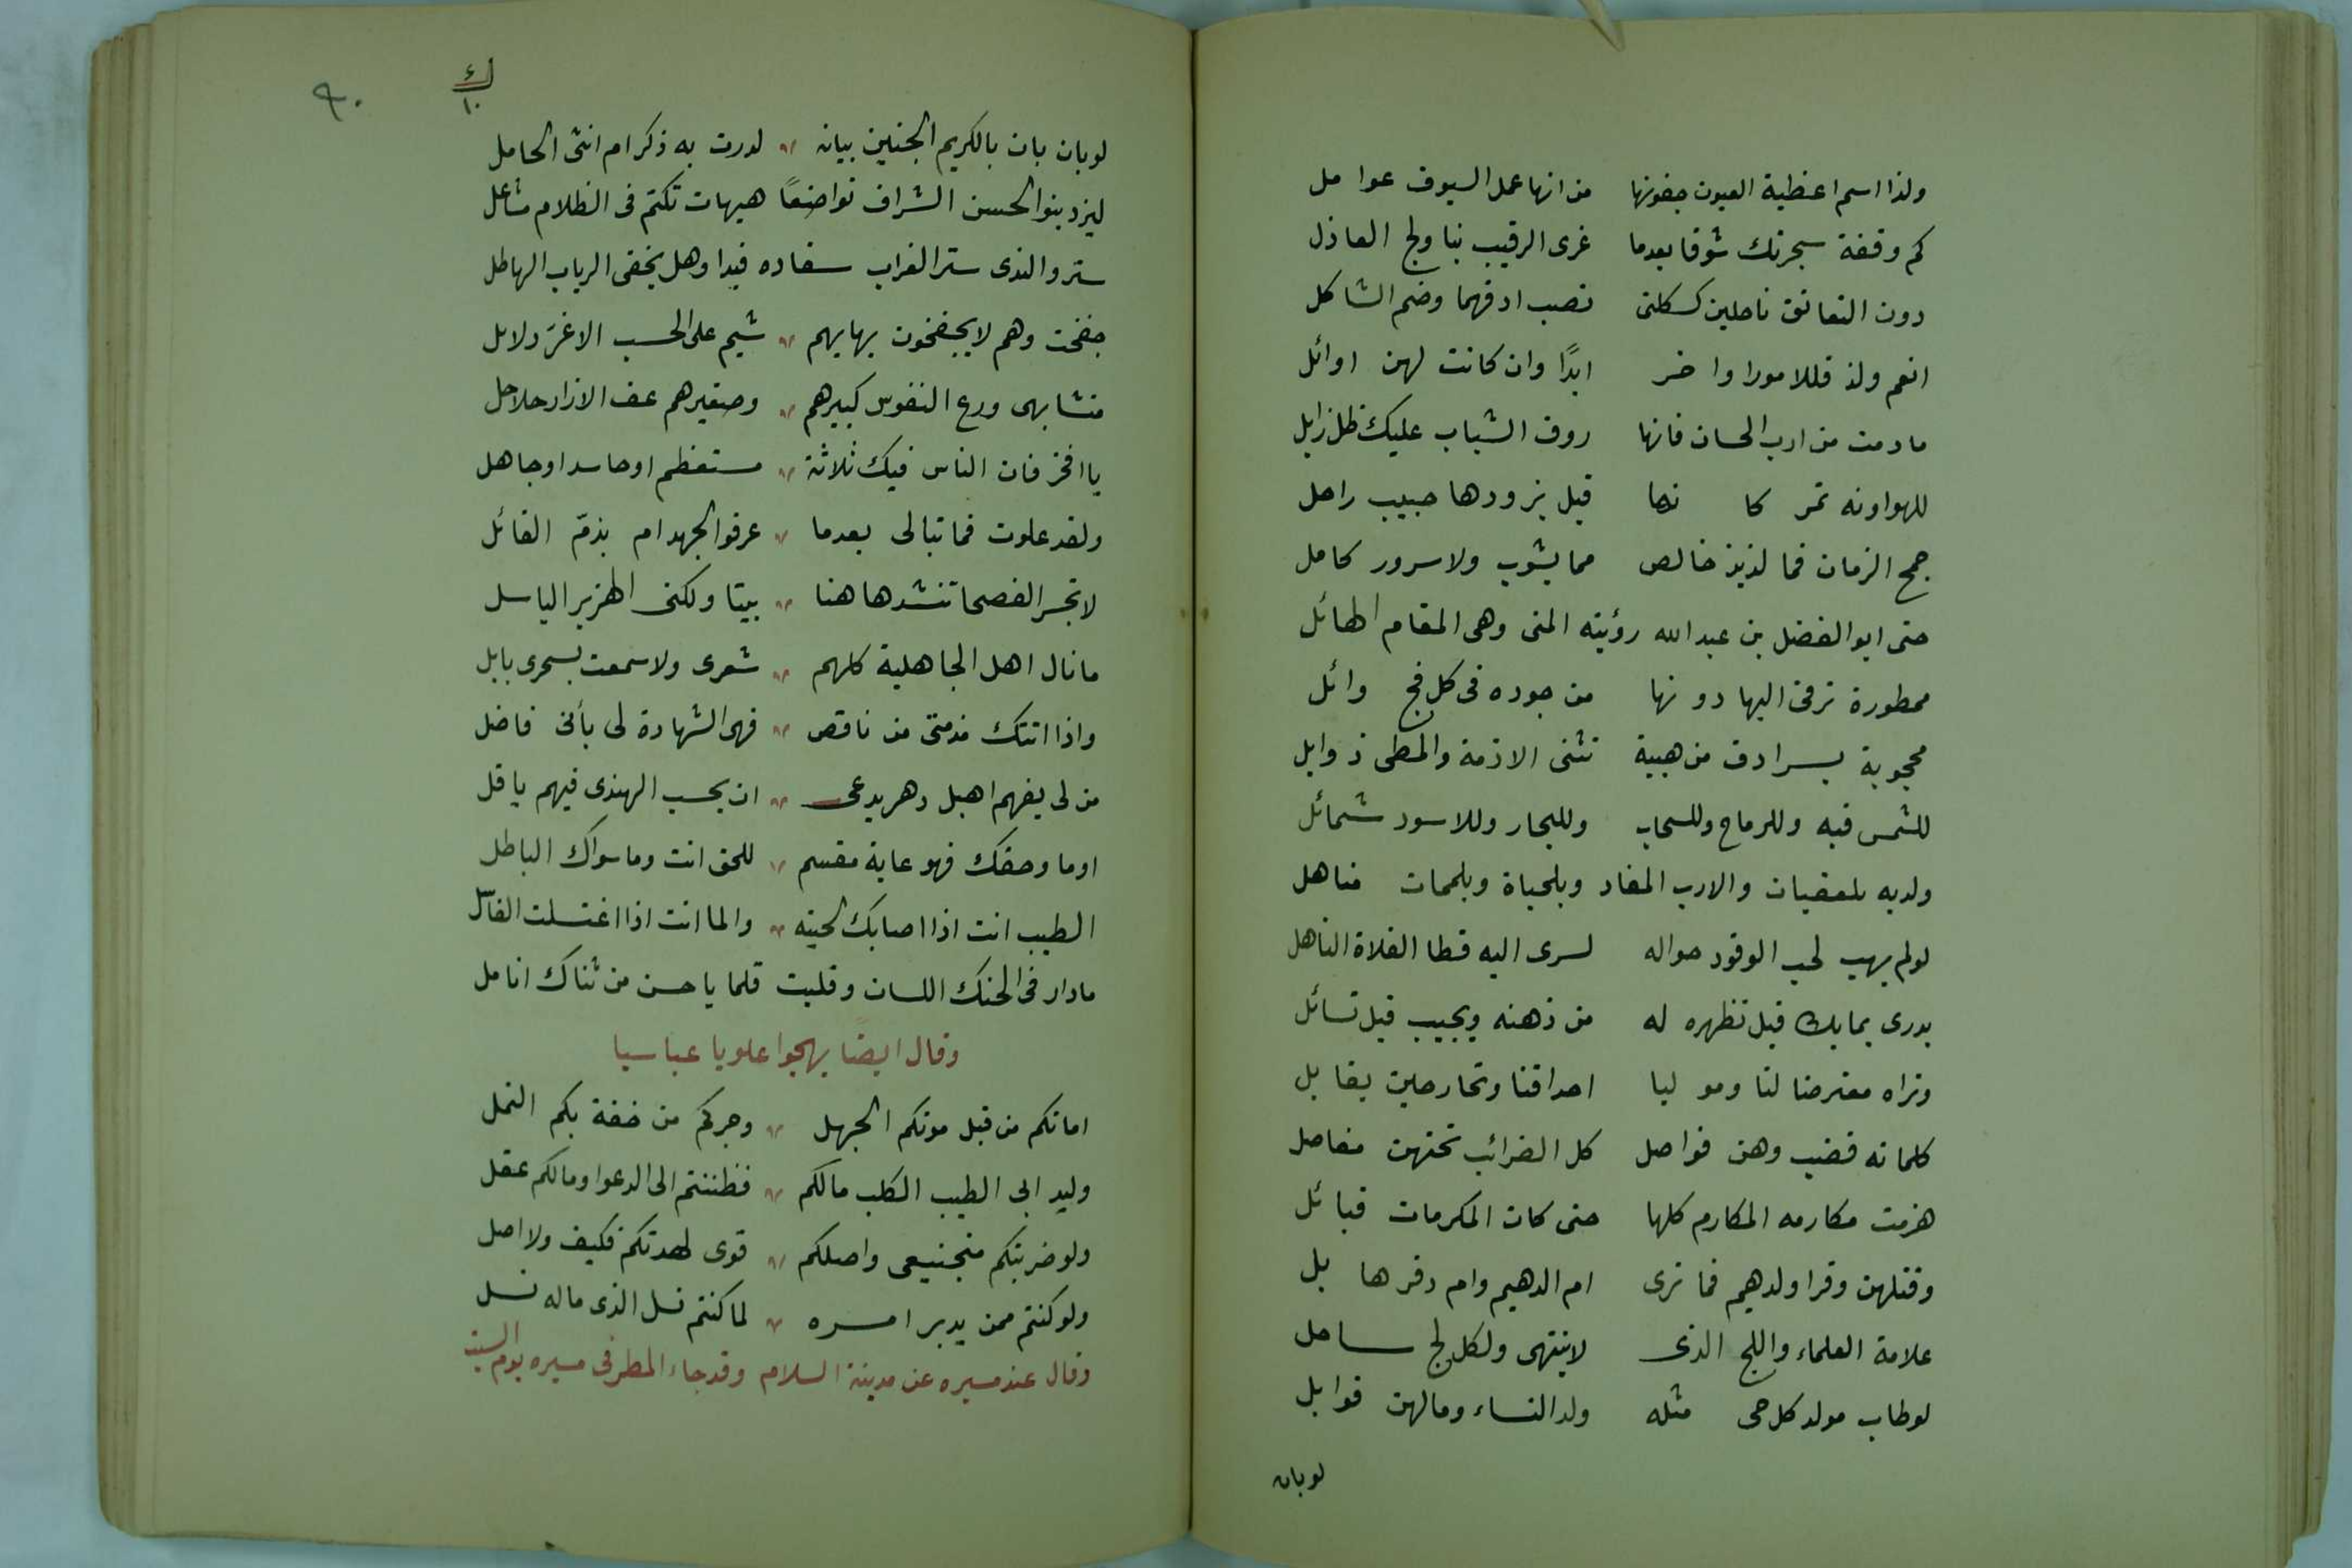 ولذا اسم اغطية العيون جفونها من انها عمل السيوف عوامل
كم وقفة سجرتك شوقا بعدما غرى الرقيب بنا ولج العاذل
دون التعانق ناحلين كسكلتى نصب ادقهما وضم الشاكل
انعم ولذ فللامورا واخر ابدًا وان كانت لهن اوائل
مادمت من ارب الحسان فانها روق الشباب عليك ظل زايل
للهو اونه تمر كا نها قبل يزودها حبيب راحل
جمح الزمان فما لذيذ خالص مما يشوب ولا سرور كامل
حتى ابو الفضل بن عبد الله رؤيته المنى وهى المقام الهائل
ممطورة ترقى اليها دونها من جوده فى كل فج وائل
محجوبة بسرادق من هيبة تثنى الازمة والمطى ذوابل
للشمس فيه وللرماح وللسحاب وللبحار وللاسود شمائل
ولديه بلعقيان والادب المفاد وبلحياة وبلممات مناهل
لولم يهب لجب الوفود حواله لسرى اليه قطا الفلاة الناهل
يدرى بما بك قبل تظهره له من ذهنه ويجيب قبل تسائل
وتراه معترضا لنا وموليا احداقنا وتحارحين يقابل
كلماته قضب وهن فواصل كل الضرائب تحتهن مفاصل
هزمت مكارمه المكارم كلها حتى كان المكرمات قبائل
وقتلهن وقرا ولدهيم فما ترى ام الدهيم وام دفر هابل
علامة العلماء واللج الذى لا ينتهى ولكل لج ساحل
لوطاب مولد كل حى مثله ولد النساء ومالهن قوابل
لوبان
٩٠
ك ١٠
لوبان بان بالكريم الجنين بيانه لدرت به ذكر ام انثى الحامل
ليزد بنو الحسن الشراف تواضعًا هيهات تكتم فى الظلام مشاعل
ستروا الندى ستر الغراب سفاده فبدا وهل يخفى الرباب الهاطل
جفخت وهم لا يجفخون بهابهم شيم على الحسب الاغرّ دلائل
متشابهى ورع النفوس كبيرهم وصغيرهم عف الازار حلاحل
يا افخر فان الناس فيك ثلاثة مستعظم او حاسد او جاهل
ولقد علوت فما تبالى بعدما عرفوا الجهد ام بذمّ القائل
لا تجسر الفصحا تنشد هاهنا بيتا ولكنى الهزبر الباسل
ما نال اهل الجاهلية كلهم شعرى ولا سمعت بسحرى بابل
واذا اتتك مذمتى من ناقص فهى الشهادة لى بأنى فاضل
من لى بفهم اهيل دهر يدعى ان يحسب الهندى فيهم باقل
اوما وحقك فهو غاية مقسم للحق انت وما سواك الباطل
الطيب انت اذا اصابك لحيته والما انت اذا اغتسلت الغاسل
مادار فى الحنك اللسان وقلبت قلما ياحسن من ثناك انامل
وقال ايضًا يهجوا علويا عباسيا
اماتكم من قبل موتكم الجهل وجركم من خفة بكم النمل
وليد ابى الطيب الكلب مالكم فظننتم الى الدعوا ومالكم عقل
ولو ضربتكم منجنيعى واصلكم قوى لهدتكم فكيف ولا اصل
ولو كنتم ممن يدبر امره لما كنتم نسل الذى ماله نسل
وقال عند مسيره عن مدينة السلام وقد جاء المطر فى مسيره يوم السبت